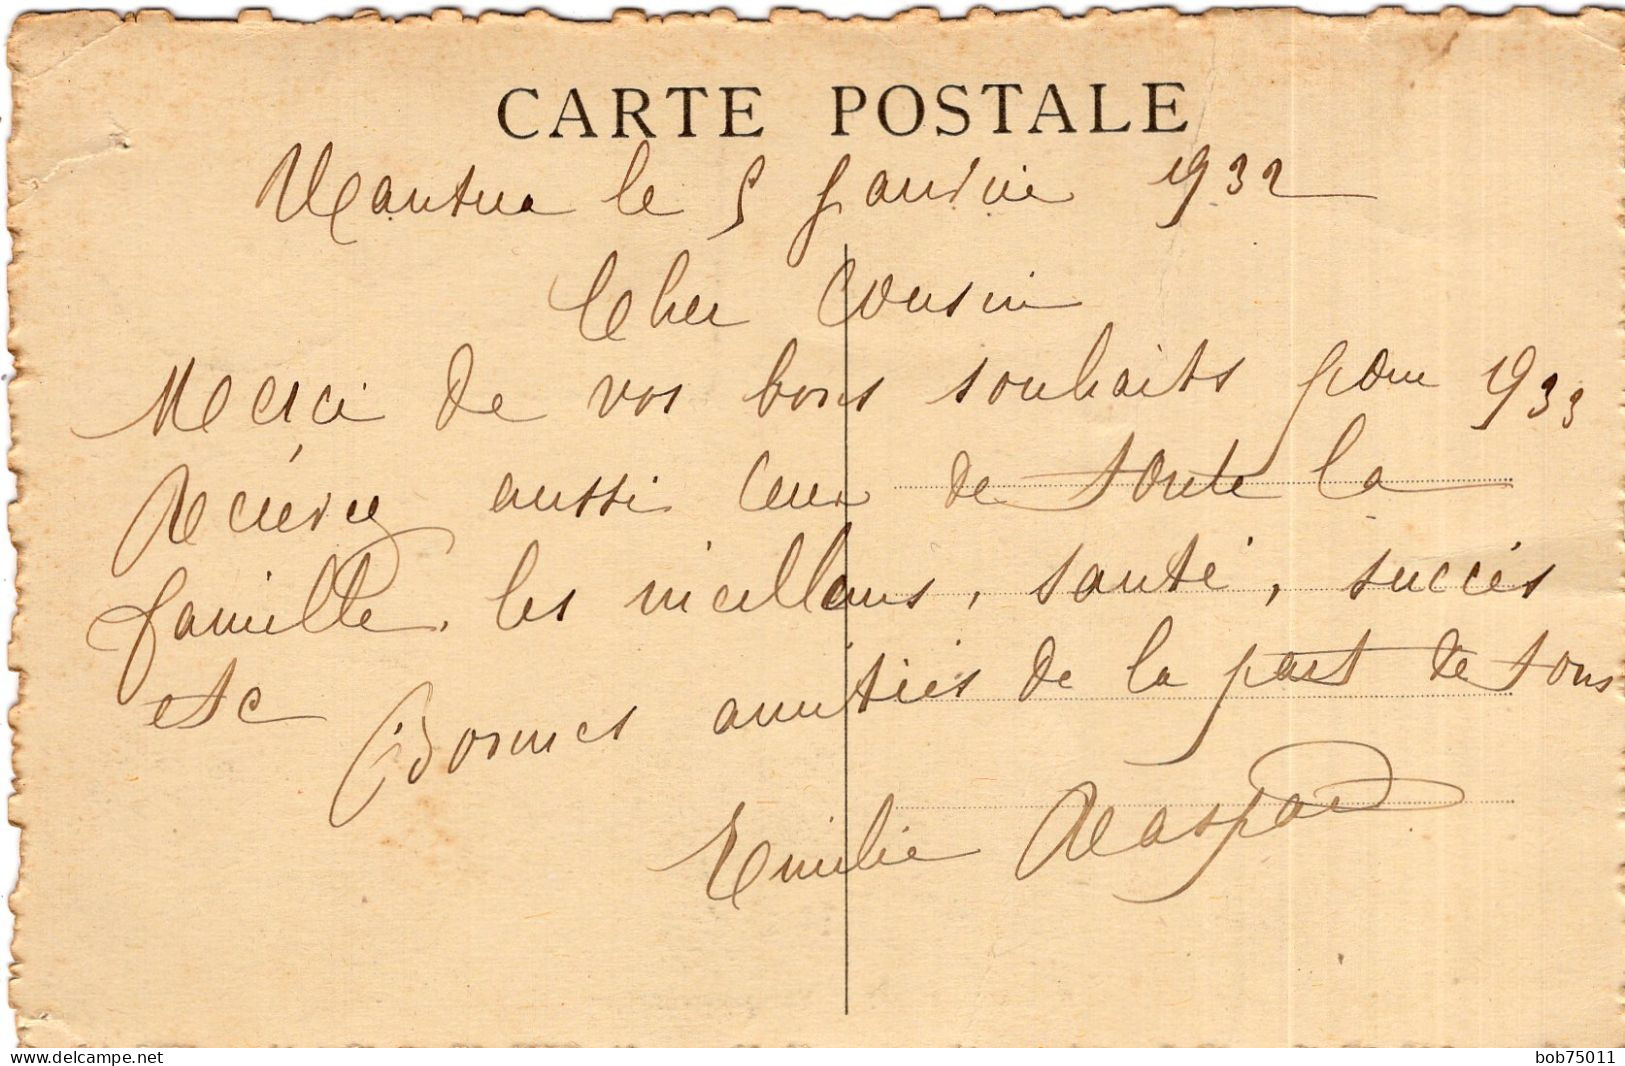 CARTE POSTALE
Nantua le 5 Janvier 1932
Cher Cousin
Merci de vos bons souhaits pour 1933
Recevez aussi ceux de toute la
famille, les meilleurs, santé, succès
etc Bonnes amitiés de la part de tous
Emilie Raspail
delcampe.net
bob75011